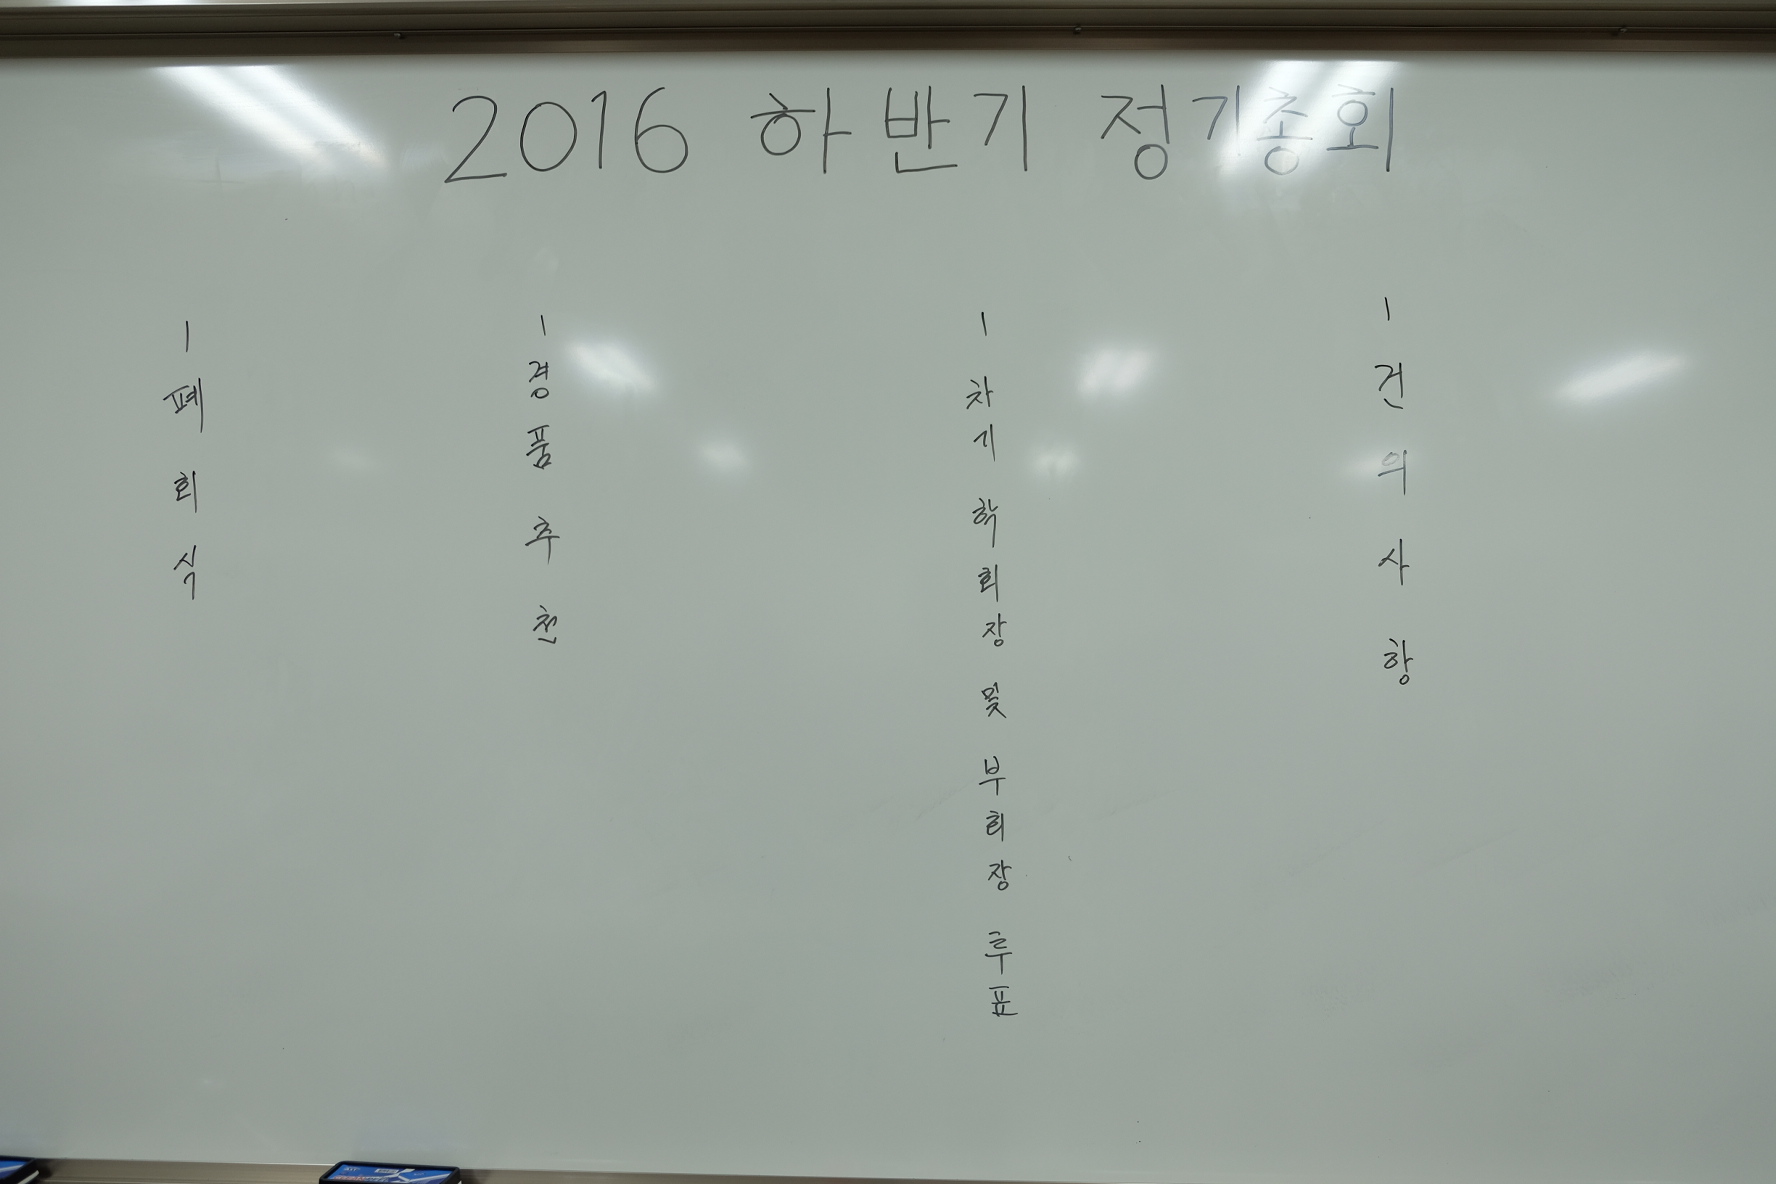 2016 하반기 정기총회
- 건의사항
- 차기 학회장 및 부회장 투표
- 경품 추천
- 폐회식